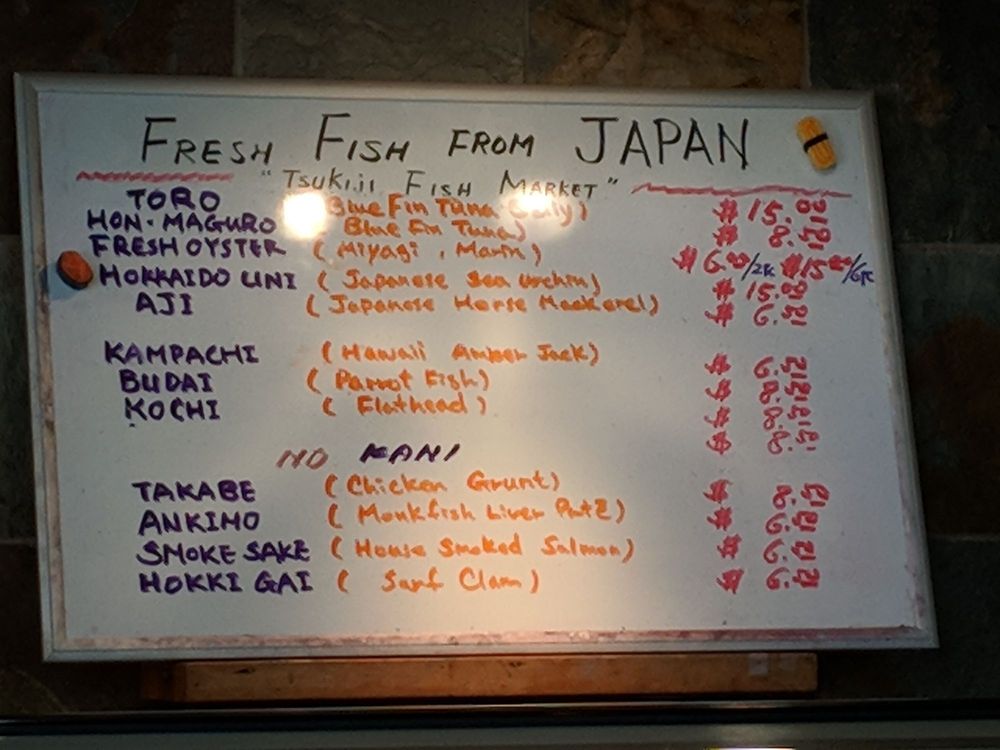 FRESH FISH FROM JAPAN
"TSUKIJI FISH MARKET"
TORO (Blue Fin Tuna Belly) $ 15.
HON-MAGURO (Blue Fin Tuna) $ 8.
FRESH OYSTER (Miyagi, Marin) $ 6 /2pc $ 15 /6pc
HOKKAIDO UNI (Japanese Sea Urchin) $ 15.
AJI (Japanese Horse Mackerel) $ 6.
KAMPACHI (Hawaii Amber Jack) $ 6.
BUDAI (Parrot Fish) $ 8.
KOCHI (Flathead) $ 8.
$ 8.
NO KANI
TAKABE (Chicken Grunt) $ 8.
ANKIMO (Monkfish Liver Pate) $ 6.
SMOKE SAKE (House Smoked Salmon) $ 6.
HOKKI GAI (Surf Clam) $ 6.